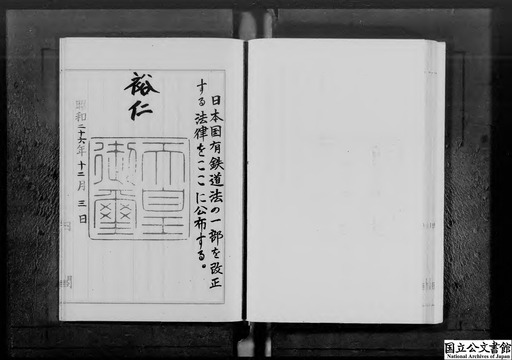 日本国有鉄道法の一部を改正
する法律をここに公布する。
裕仁
天皇
御璽
昭和二十六年十二月三日
国立公文書館
National Archives of Japan